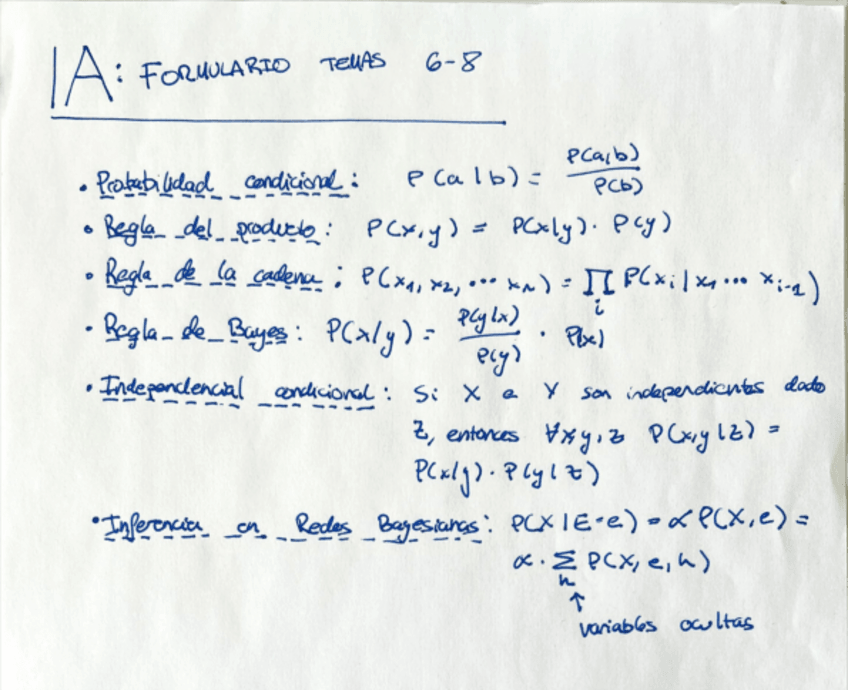 IA: FORMULARIO TEMAS 6-8
• Probabilidad condicional: P(a|b) = P(a,b) / P(b)
• Regla del producto: P(x,y) = P(x|y) · P(y)
• Regla de la cadena: P(x₁, x₂, ... xₙ) = ∏ᵢ P(xᵢ | x₁ ... xᵢ₋₁)
• Regla de Bayes: P(x/y) = P(y|x) / P(y) · P(x)
• Independencial condicional: Si X e Y son independientes dado
Z, entonces ∀x,y,z P(x,y|z) =
P(x/y) · P(y|z)
• Inferencia en Redes Bayesianas: P(X|E=e) = αP(X,e) =
α · Σₕ P(X, e, h)
↑
variables ocultas